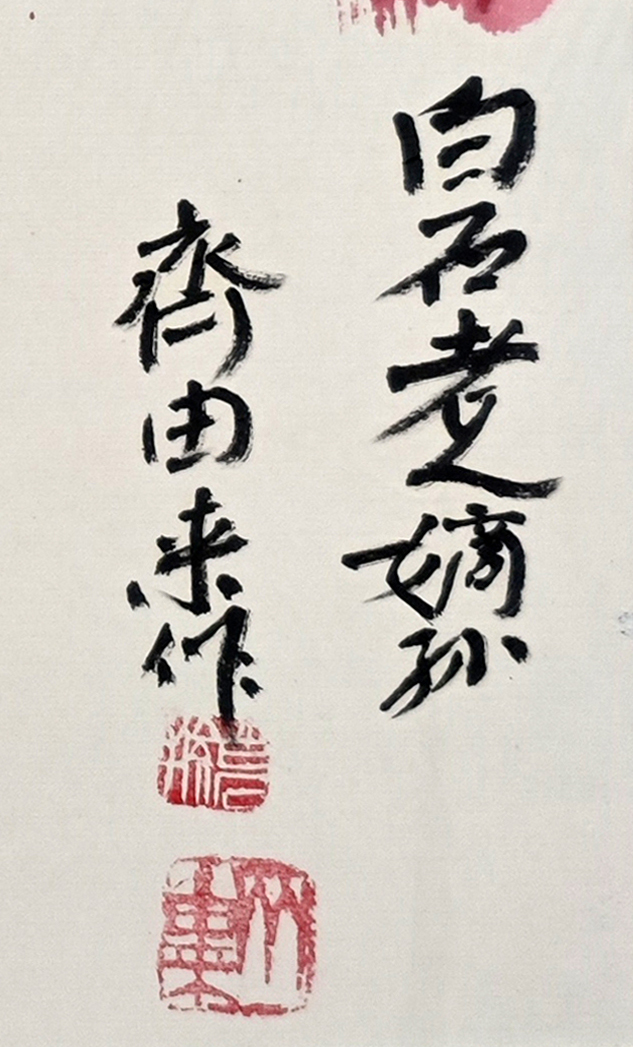 白石老人嫡孙
齊由来作